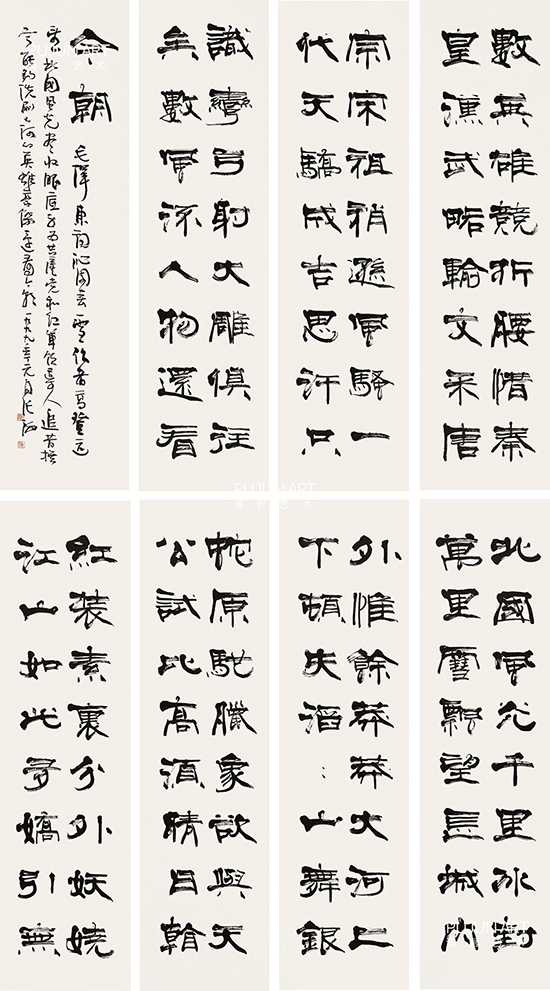 北國風光千里冰封
萬里雪飄望長城內
外惟餘莽莽大河上
下頓失滔〻山舞銀
蛇原馳臘象欲與天
公試比高須晴日看
紅装素裹分外妖嬈
江山如此多嬌引無
數英雄競折腰惜秦
皇漢武略輸文采唐
宗宋祖稍遜風騷一
代天驕成吉思汗只
識彎弓射大雕俱往
矣數風流人物還看
今朝 毛澤東詞沁園春雪 者高登远
北國風光盡收眼底 共產党和紅軍 人追昔撫
英雄